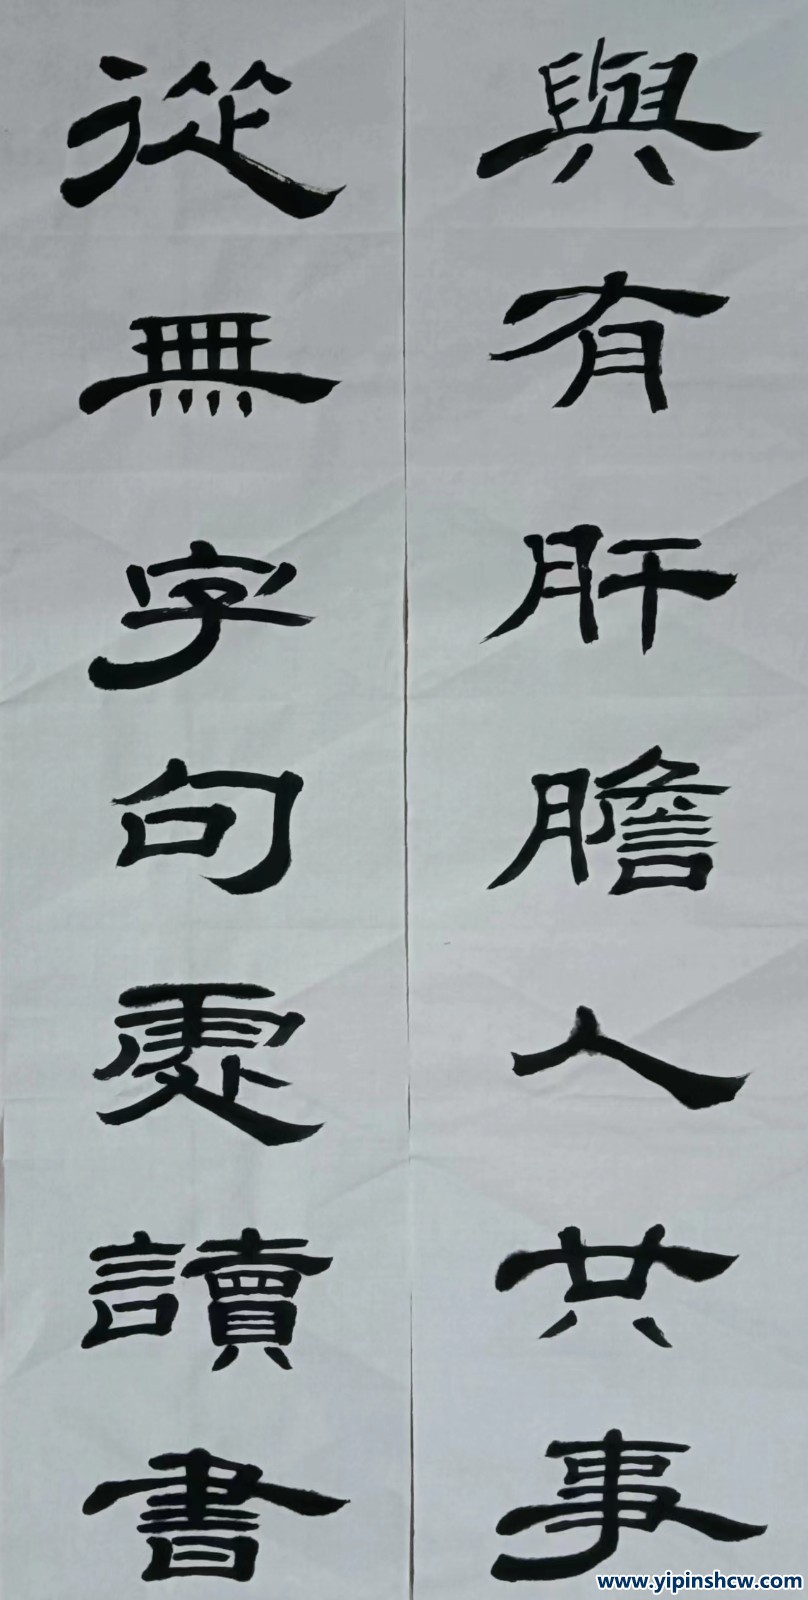 與有肝膽人共事
從無字句處讀書
www.yipinshcw.com